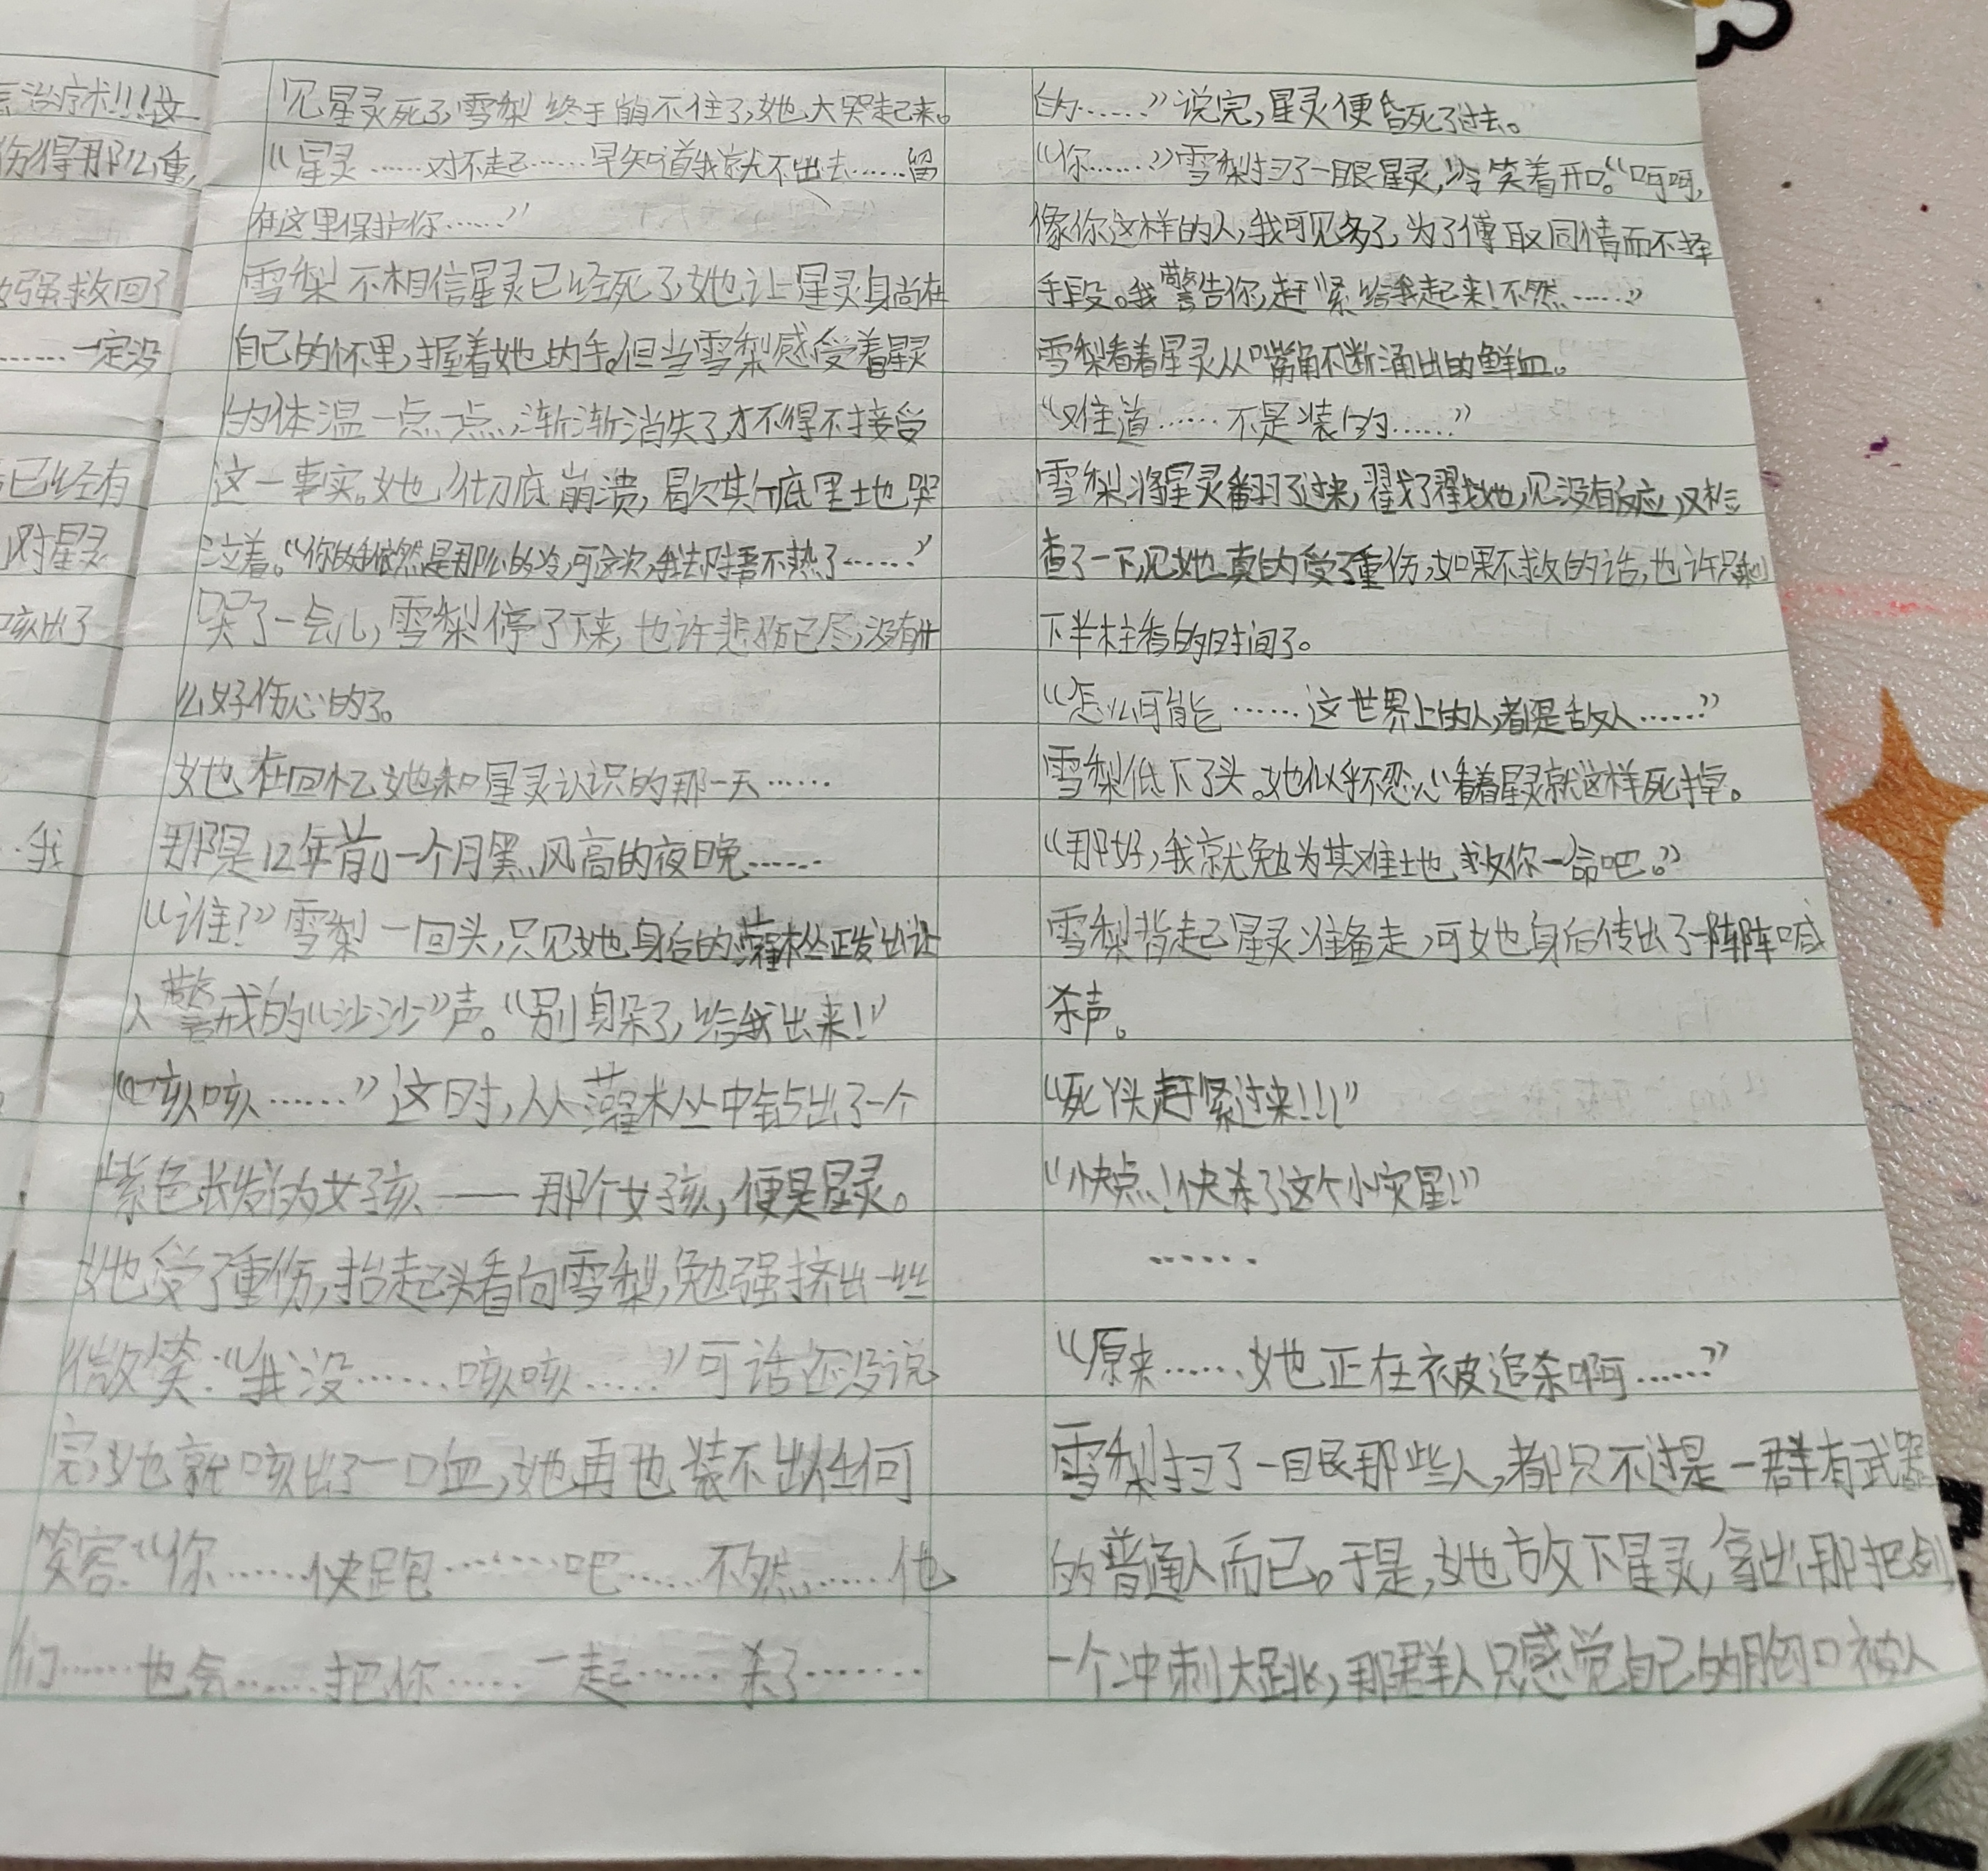 么治疗术!!!这
伤得那么重,
强救回了
……一定没
已经有
对星灵
咳出了
…我
见星灵死了,雪梨终于崩不住了,她大哭起来。
“星灵……对不起……早知道我就不出去……留
在这里保护你……”
雪梨不相信星灵已经死了,她让星灵身尚在
自己的怀里,握着她的手。但当雪梨感受着星灵
的体温一点一点,渐渐消失了,才不得不接受
这一事实。她彻底崩溃,歇斯底里地哭
泣着。“你的手依然是那么的冷,可这次,我去捂不热了……”
哭了一会儿,雪梨停了下来,也许悲伤已尽,没有什
么好伤心的了。
她在回忆她和星灵认识的那一天……
那是12年前,一个月黑风高的夜晚……
“谁?”雪梨一回头,只见她身后的灌木丛正发出让
人警戒的“沙沙”声。“别躲了,给我出来!”
“咳咳……”这时,从灌木丛中钻出了一个
紫色长发的女孩——那个女孩,便是星灵。
她受了重伤,抬起头看向雪梨,勉强挤出一丝
微笑:“我没……咳咳……”可话还没说
完,她就咳出了一口血,她再也装不出任何
笑容:“你……快跑……吧……不然……他
们……也会……把你……一起……杀了……
的……”说完,星灵便昏死了过去。
“你……”雪梨扫了一眼星灵,冷笑着开口。“呵呵,
像你这样的人,我可见多了,为了博取同情而不择
手段。我警告你,赶紧给我起来!不然……”
雪梨看着星灵从嘴角不断涌出的鲜血。
“难道……不是装的……”
雪梨将星灵翻了过来,戳了戳她,见没有反应,又检
查了一下,见她真的受了重伤,如果不救的话,也许只剩
下半柱香的时间了。
“怎么可能……这世界上的人,都是敌人……”
雪梨低下了头。她似乎不忍心看着星灵就这样死掉。
“那好,我就勉为其难地救你一命吧。”
雪梨背起星灵准备走,可她身后传出了一阵阵喊
杀声。
“死丫头赶紧过来!!!”
“快点!快杀了这个小灾星!”
……
“原来……她正在被追杀啊……”
雪梨扫了一眼那些人,都只不过是一群有武器
的普通人而已。于是,她放下星灵,拿出那把剑,
一个冲刺大跳,那群人只感觉自己的胸口被人